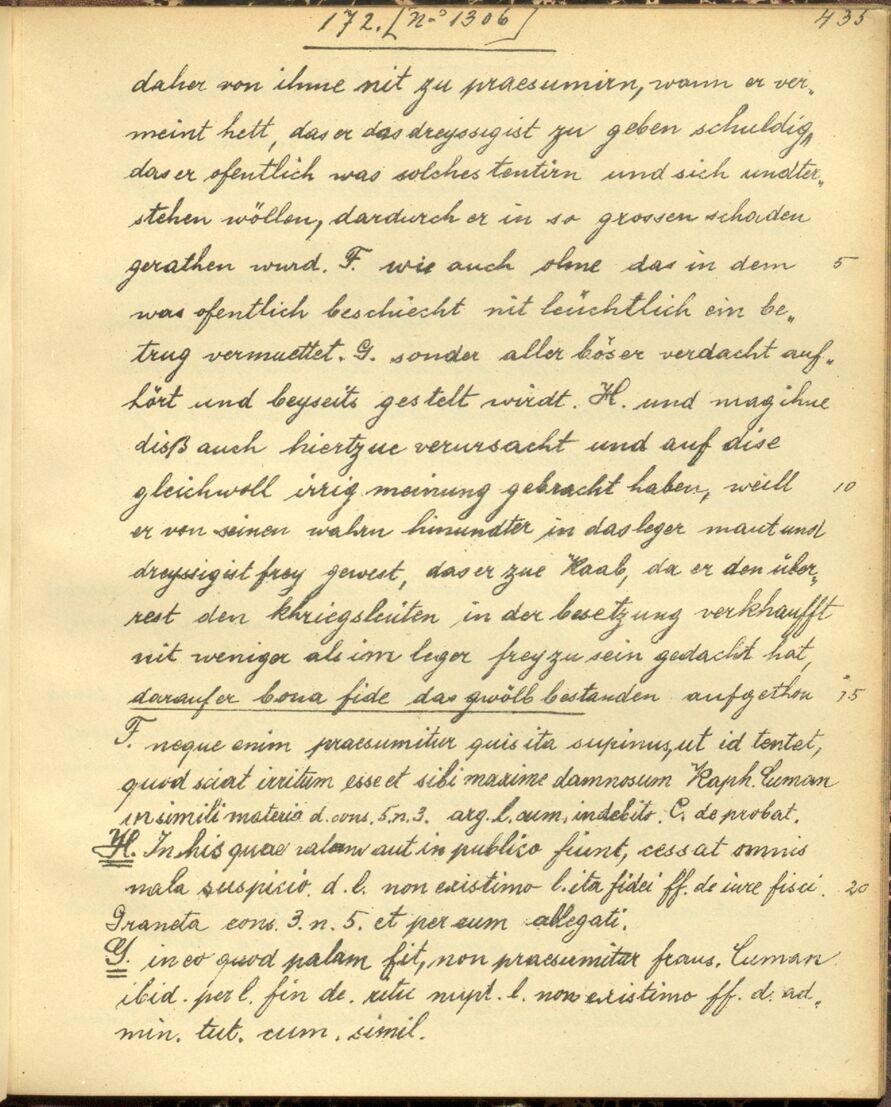 172. [No 1306]
435
daher von ihme nit zu praesumirn, wann er ver„
meint hett, das er das dreyssigist zu geben schuldig,
das er ofentlich was solches tentirn und sich undter„
stehen wöllen, dardurch er in so grossen schaden
gerathen wurd. F. wie auch ohne das in dem 5
was ofentlich beschiecht nit leüchtlich ein be„
trug vermuettet. G. sonder aller böser verdacht auf„
hört und beyseits gestelt wirdt. H. und mag ihne
disß auch hiertzue verursacht und auf dise
gleichwoll irrig meinung gebracht haben, weill 10
er von seinen wahrn hinundter in das leger maut und
dreyssigist frey gewest, das er zue Raab, da er den über„
rest den khriegsleüten in der besetzung verkhaufft
nit weniger als im leger frey zu sein gedacht hat,
darauf er bona fide das gwölb bestanden aufgethon 15
F. neque enim praesumitur quis ita supinus, ut id tentet,
quod sciat irritum esse et sibi maxime damnosum Raph. Cuman
in simili materia d. cons. 5. n. 3. arg. l. cum, indebito. C. de probat.
H. In his quae palam aut in publico fiunt, cessat omnis
mala suspicio. d. l. non existimo l. ita fidei ff. de iure fisci. 20
Graneta cons. 3. n. 5. et per eum allegati.
G. in eo quod palam fit, non praesumitur fraus. Cuman
ibid. per l. fin de. ritu nupt. l. non existimo ff. d. ad„
min. tut. cum. simil.